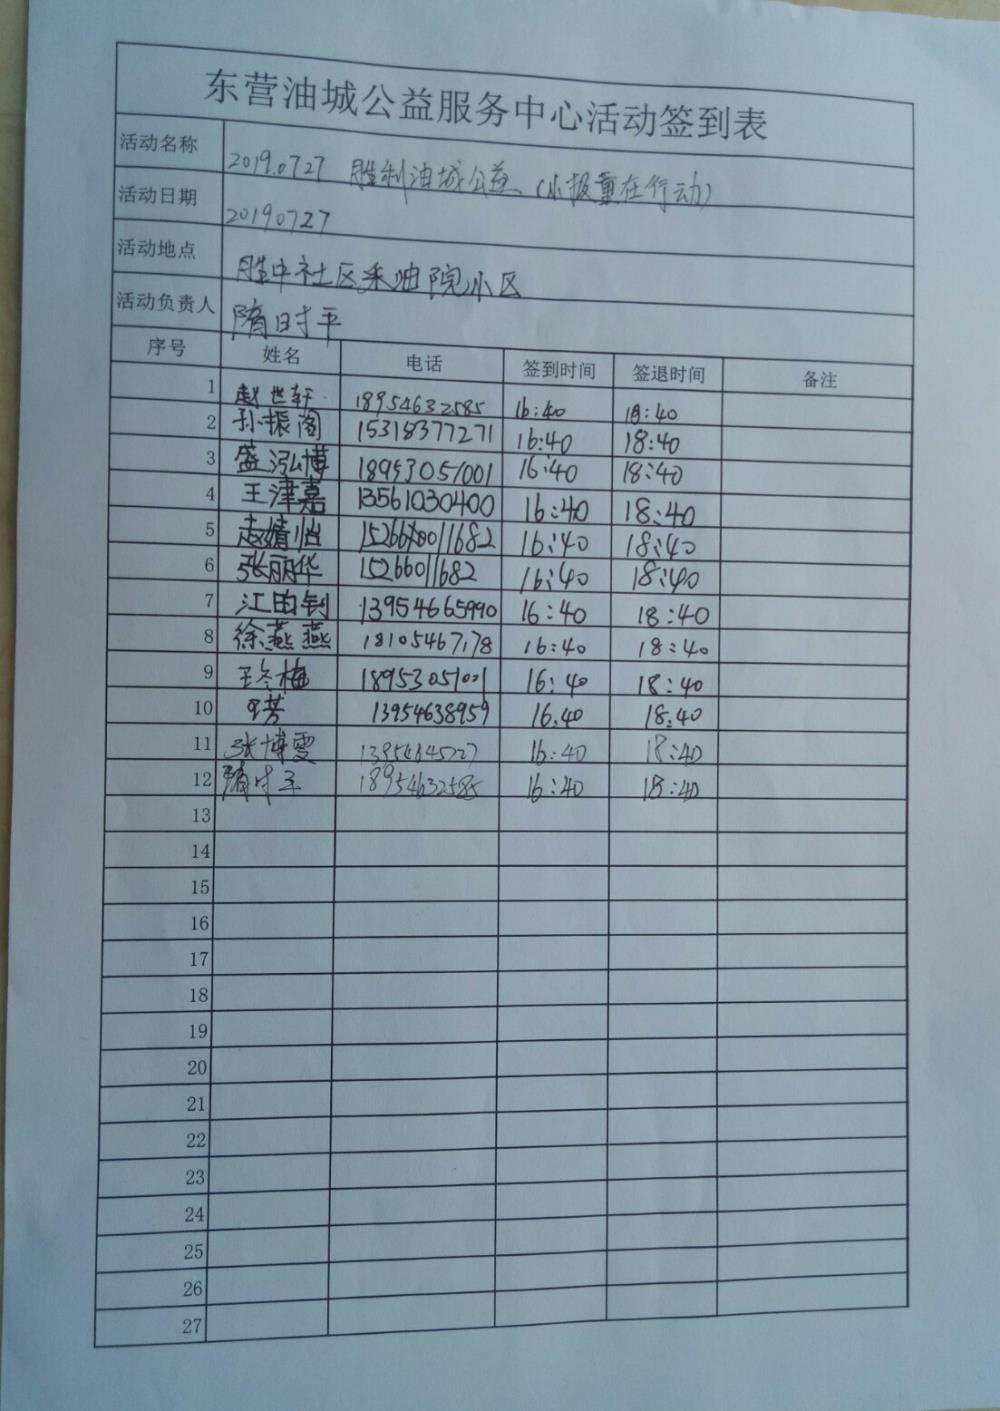 东营油城公益服务中心活动签到表
活动名称 2019.0727 胜利油城公益(小报童在行动)
活动日期 20190727
活动地点 胜中社区采油院小区
活动负责人 隋时平
序号 姓名 电话 签到时间 签退时间 备注
1 赵世轩 18954632585 16:40 18:40
2 孙振阁 15318377271 16:40 18:40
3 盛泓博 18953051001 16:40 18:40
4 王津嘉 13561030400 16:40 18:40
5 赵婧怡 16:40 18:40
6 张丽华 15266011682 16:40 18:40
7 江昀钊 13954665990 16:40 18:40
8 徐燕燕 18105467178 16:40 18:40
9 王冬梅 18953051001 16:40 18:40
10 王芳 13954638959 16:40 18:40
11 张博雯 16:40 18:40
12 隋时平 18954632585 16:40 18:40
13
14
15
16
17
18
19
20
21
22
23
24
25
26
27